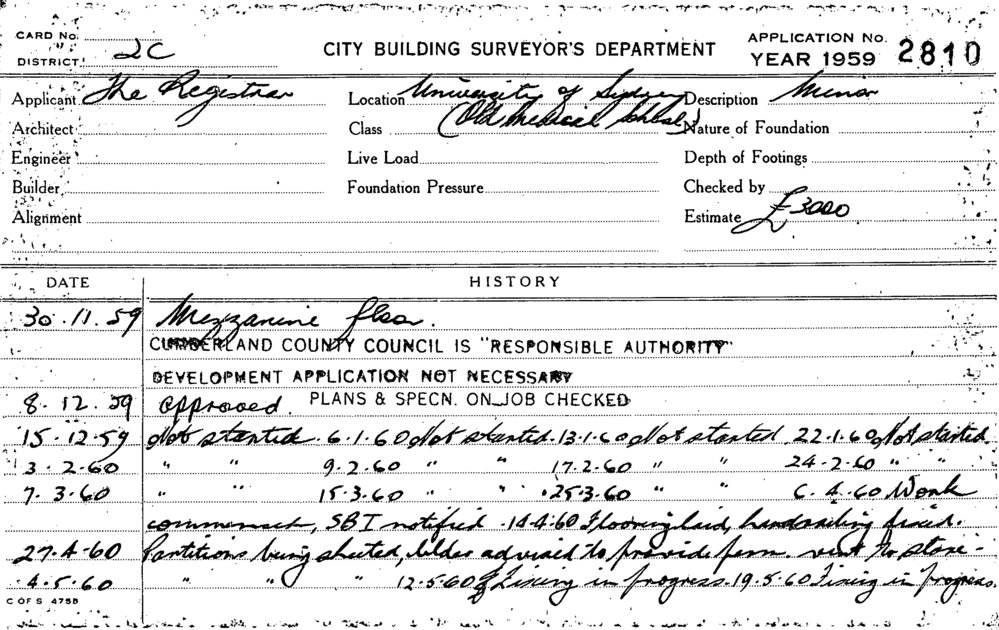 CARD No.
DISTRICT 2C
CITY BUILDING SURVEYOR'S DEPARTMENT
APPLICATION No.
YEAR 1959 2810
Applicant The Registrar Location University of Sydney Description Minor
Architect Class (Old Medical School) Nature of Foundation
Engineer Live Load Depth of Footings
Builder Foundation Pressure Checked by
Alignment Estimate £3000
DATE HISTORY
30.11.59 Mezzanine floor.
CUMBERLAND COUNTY COUNCIL IS "RESPONSIBLE AUTHORITY"
DEVELOPMENT APPLICATION NOT NECESSARY
8.12.59 approved. PLANS & SPECN. ON JOB CHECKED
15.12.59 Not started. 6.1.60 Not started. 13.1.60 Not started 22.1.60 Not started
3.2.60 " " 9.2.60 " " 17.2.60 " " 24.2.60 " "
7.3.60 " " 15.3.60 " " 25.3.60 " " 6.4.60 Work
commenced, SBI notified. 14.4.60 Flooring laid, handrailing fixed.
27.4.60 Partitions being sheeted, advised to provide perm. vent to store-
4.5.60 " " " 12.5.60 Lining in progress. 19.5.60 Lining in progress.
C OF S 4758